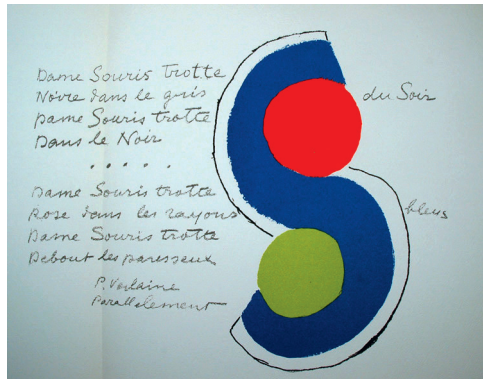 Dame Souris trotte
Noire dans le gris
Dame Souris trotte
Dans le Noir
. . . . .
Dame Souris trotte
Rose dans les rayons
Dame Souris trotte
Debout les paresseux
P. Verlaine
Parallelement
du Soir
bleus